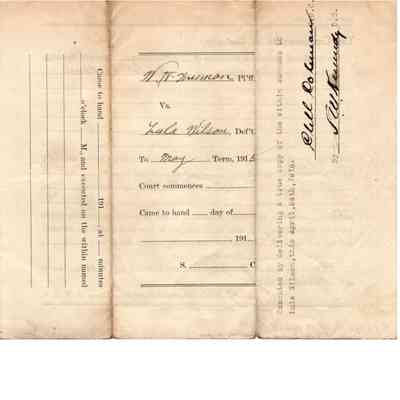 Came to hand 191 at minutes
o'clock M., and executed on the within named
Pl'ff.
Vs.
Lula Wilson, Def't
To May Term, 191
Court commences
Came to hand day of
191
S. C
Executed by delivering a true copy of the within summons to
Lula Wilson, this April, 24th,
By S.W. Kennedy D.S.